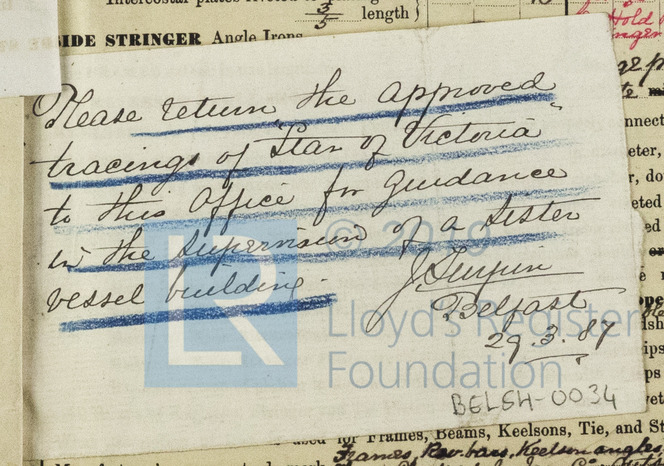 Intercostal plates
3
5
length
SIDE STRINGER Angle Irons
Hold
Please return the approved
tracings of "Star of Victoria"
to this Office for Guidance
in the supervision of a Sister
vessel building.
J Turpin
Belfast
29.3.87
© 2019
LR
Lloyd's Register
Foundation
BELSH-0034
used for Frames, Beams, Keelsons, Tie, and St
Frames, Rev. bars, Keelson angles